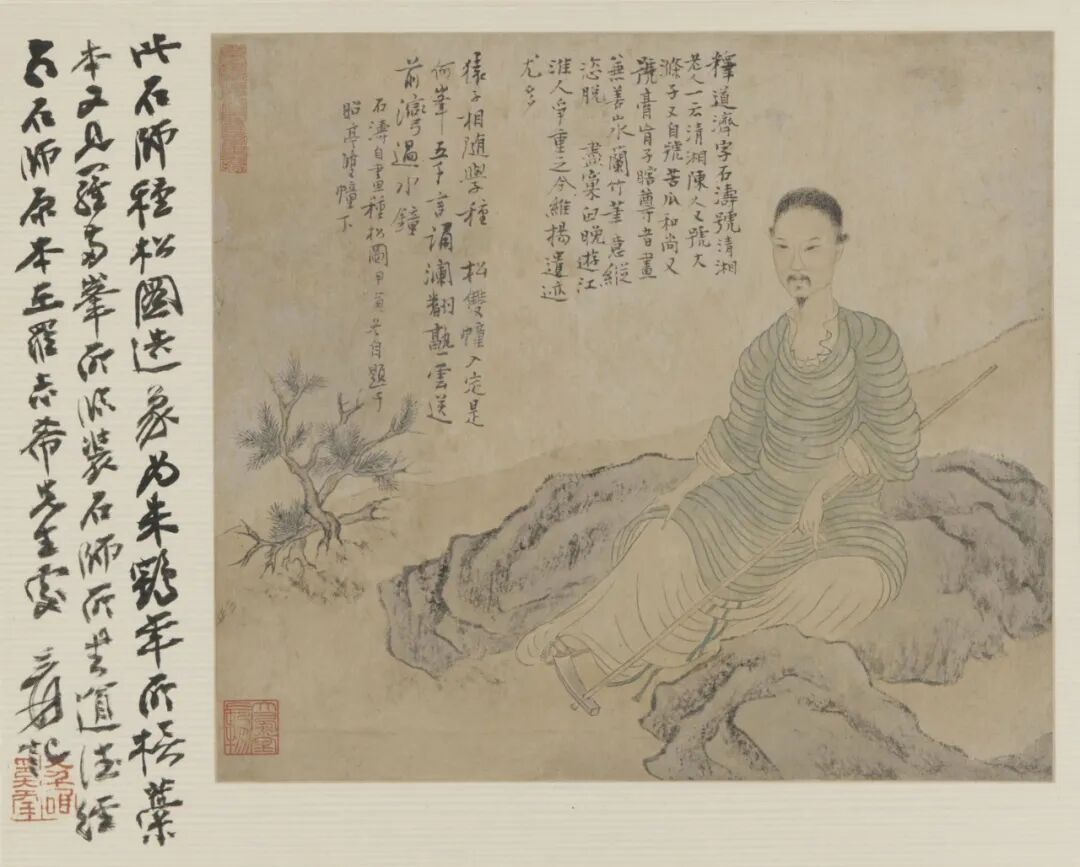 釋道濟字石濤號清湘
老人一云清湘陳人又號大
滌子又自號苦瓜和尚又
號膏肓子瞎尊者畫
兼善山水蘭竹筆意縱
恣脫盡窠臼晚遊江
淮人爭重之今維揚遺迹
尤多
猿子相隨學種松雙幢入定是
何峯五千言誦瀾翻熟一雲送
前灣過水鐘
石濤自畫種松圖甲寅自題于
昭亭雙幢下
此石師種松圖造象為朱鶴年所橅藁
本又見羅兩峯所臨裝石師所書道德經
石師原本在羅志希先生處 爰記